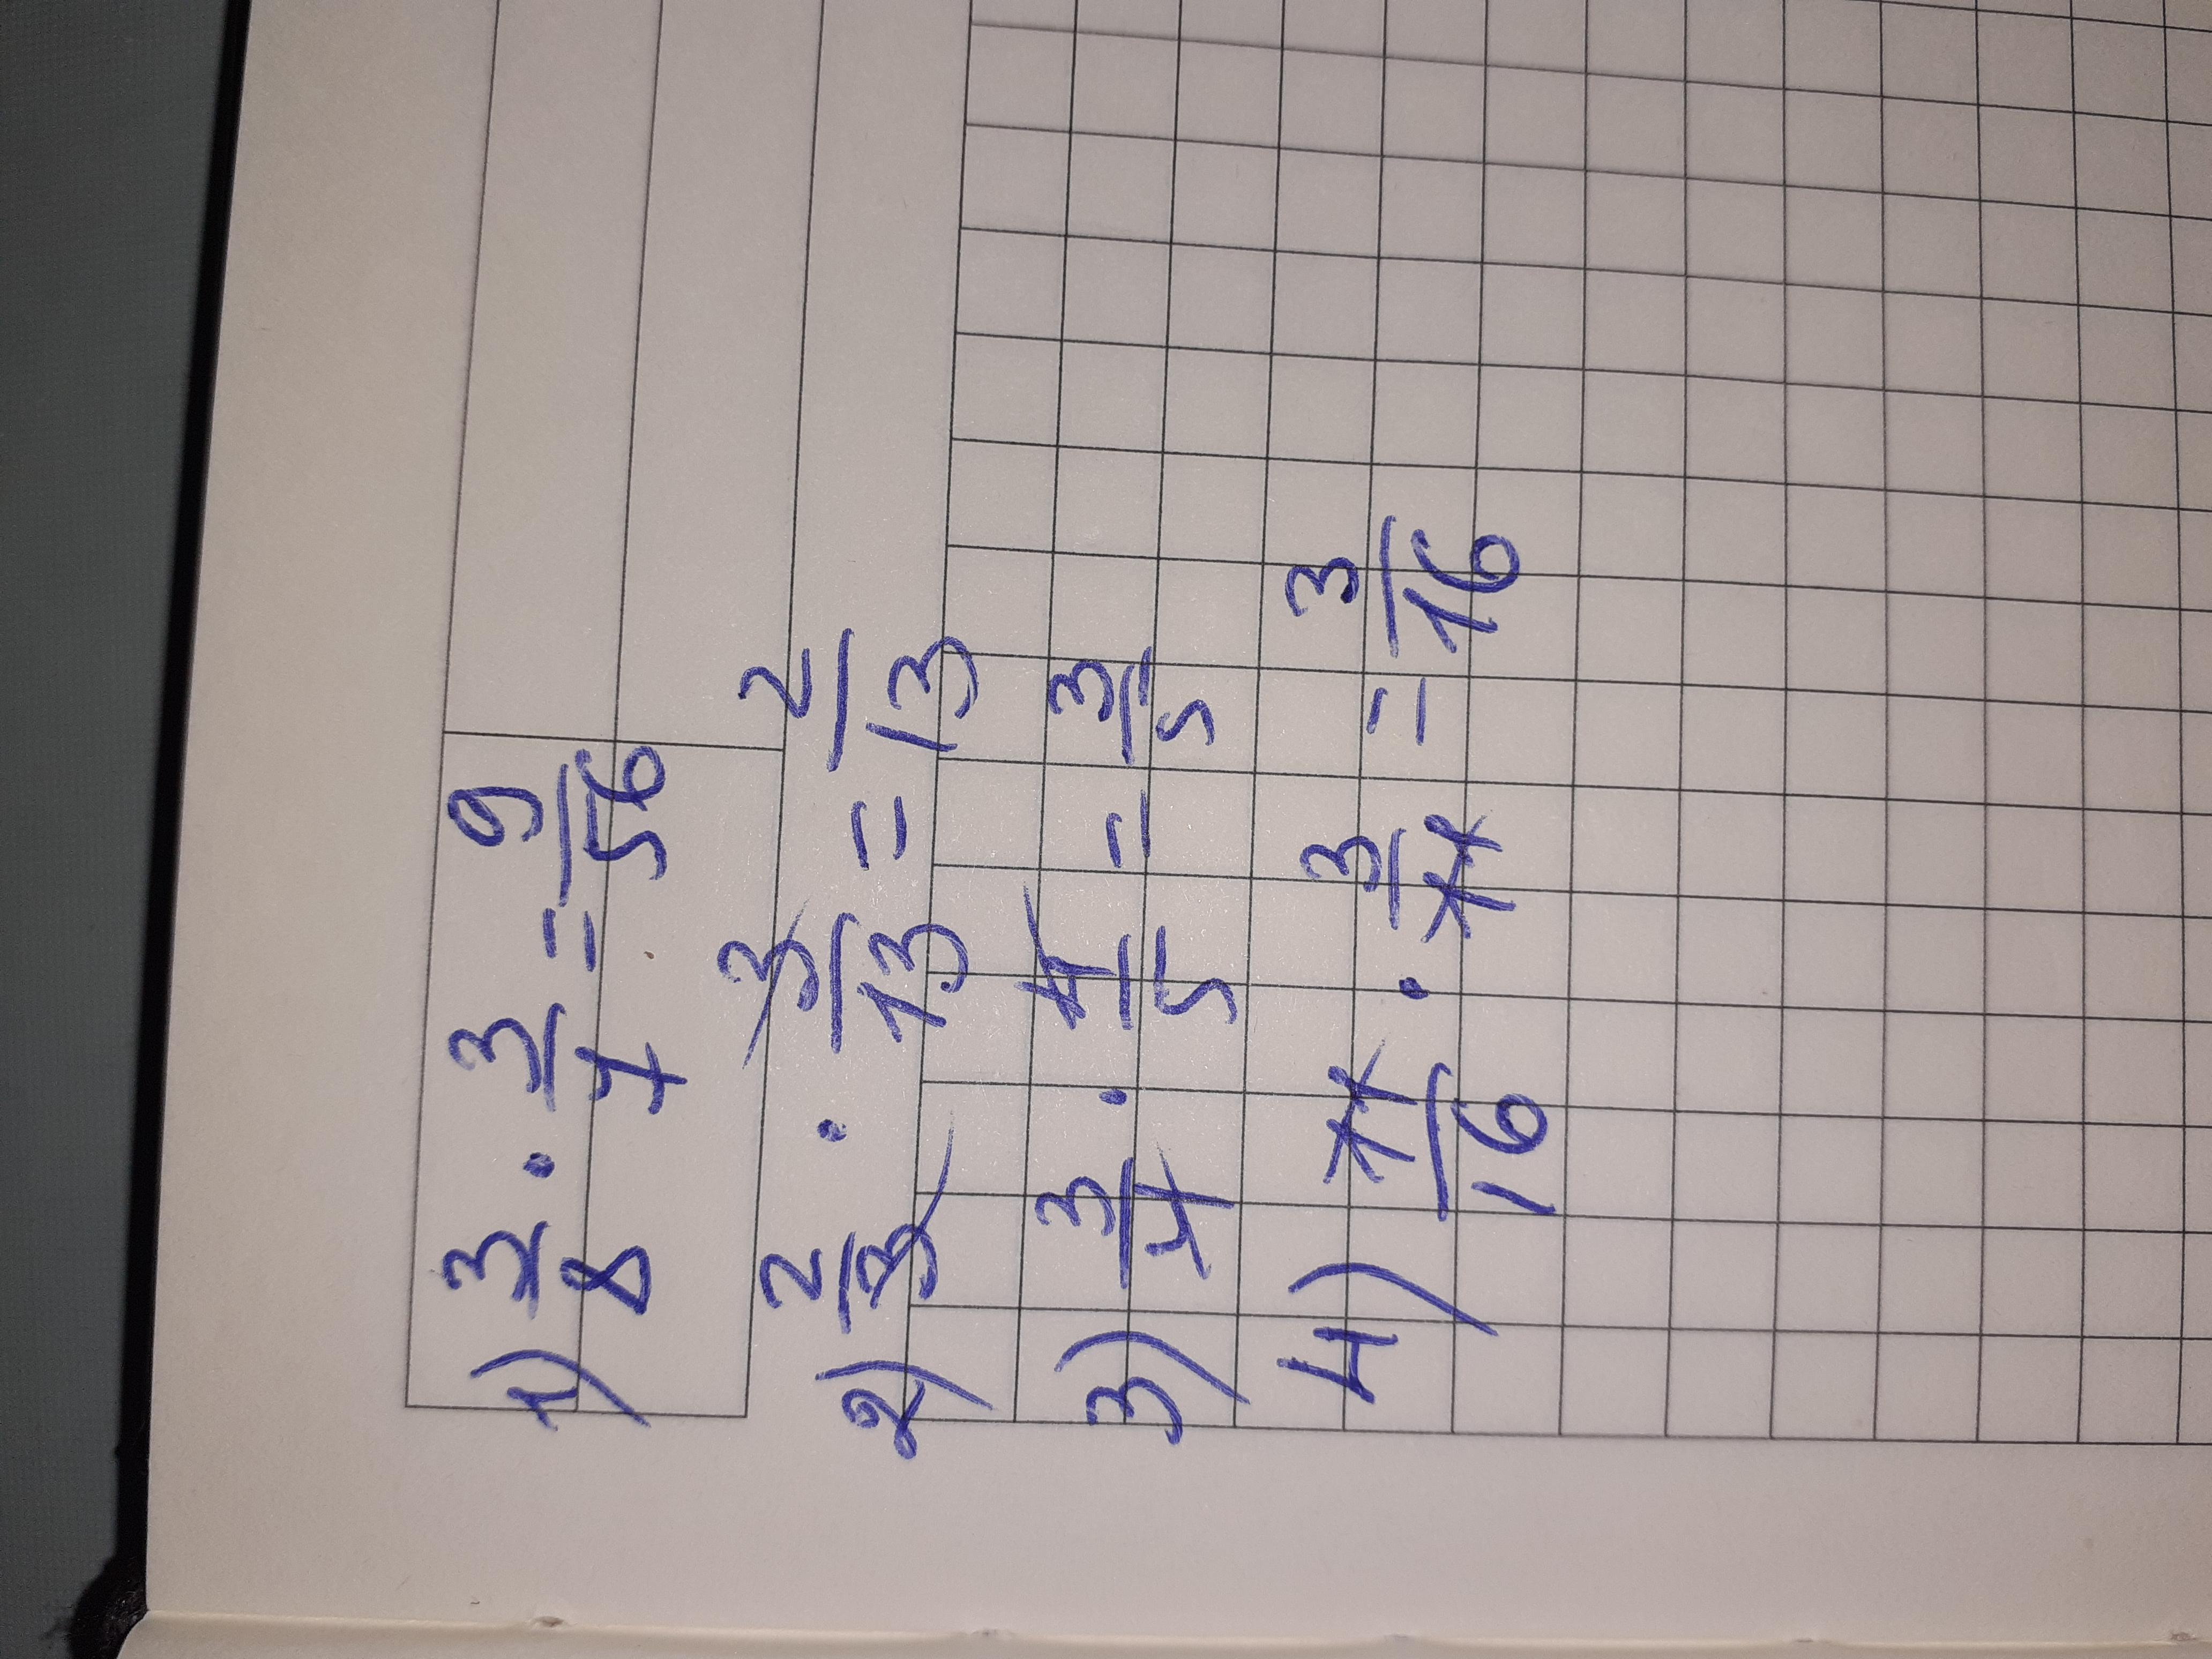 1) 3/8 · 3/7 = 9/56
2) 2/3 · 3/13 = 2/13
3) 3/4 · 4/5 = 3/5
4) 11/16 · 3/11 = 3/16